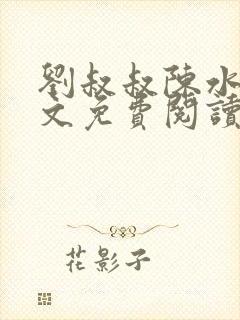 劉叔叔陳水
文免費閱讀
花影子